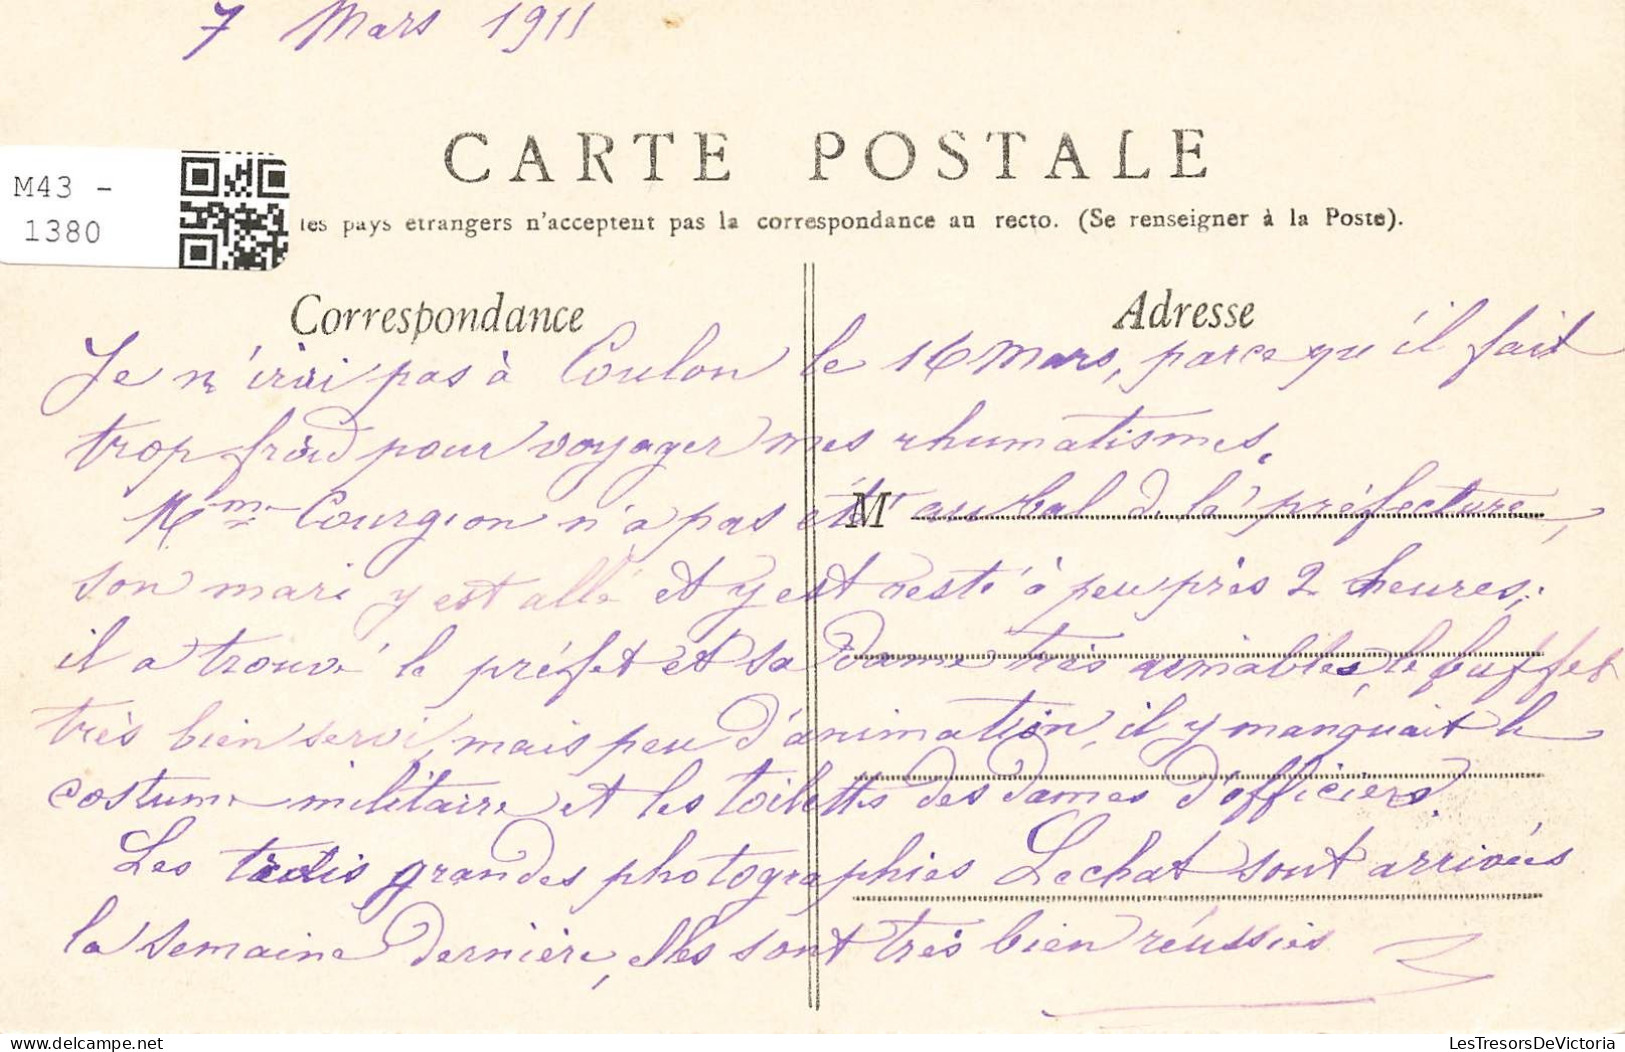 7 Mars 1911
CARTE POSTALE
M43 -
1380
les pays étrangers n'acceptent pas la correspondance au recto. (Se renseigner à la Poste).
Correspondance
Adresse
Je n'irai pas à Coulon le 16 Mars, parce qu'il fait
trop froid pour voyager mes rhumatismes.
Mme Courgeon n'a pas été au bal de la préfecture,
M
son mari y est allé et y est resté à peu près 2 heures;
il a trouvé le préfet et sa dame très aimables, le buffet
très bien servi, mais peu d'animation, il y manquait le
costume militaire et les toilettes des dames d'officiers.
Les trois grandes photographies Lechat sont arrivées
la semaine dernière, elles sont très bien réussies
LesTresorsDeVictoria.com